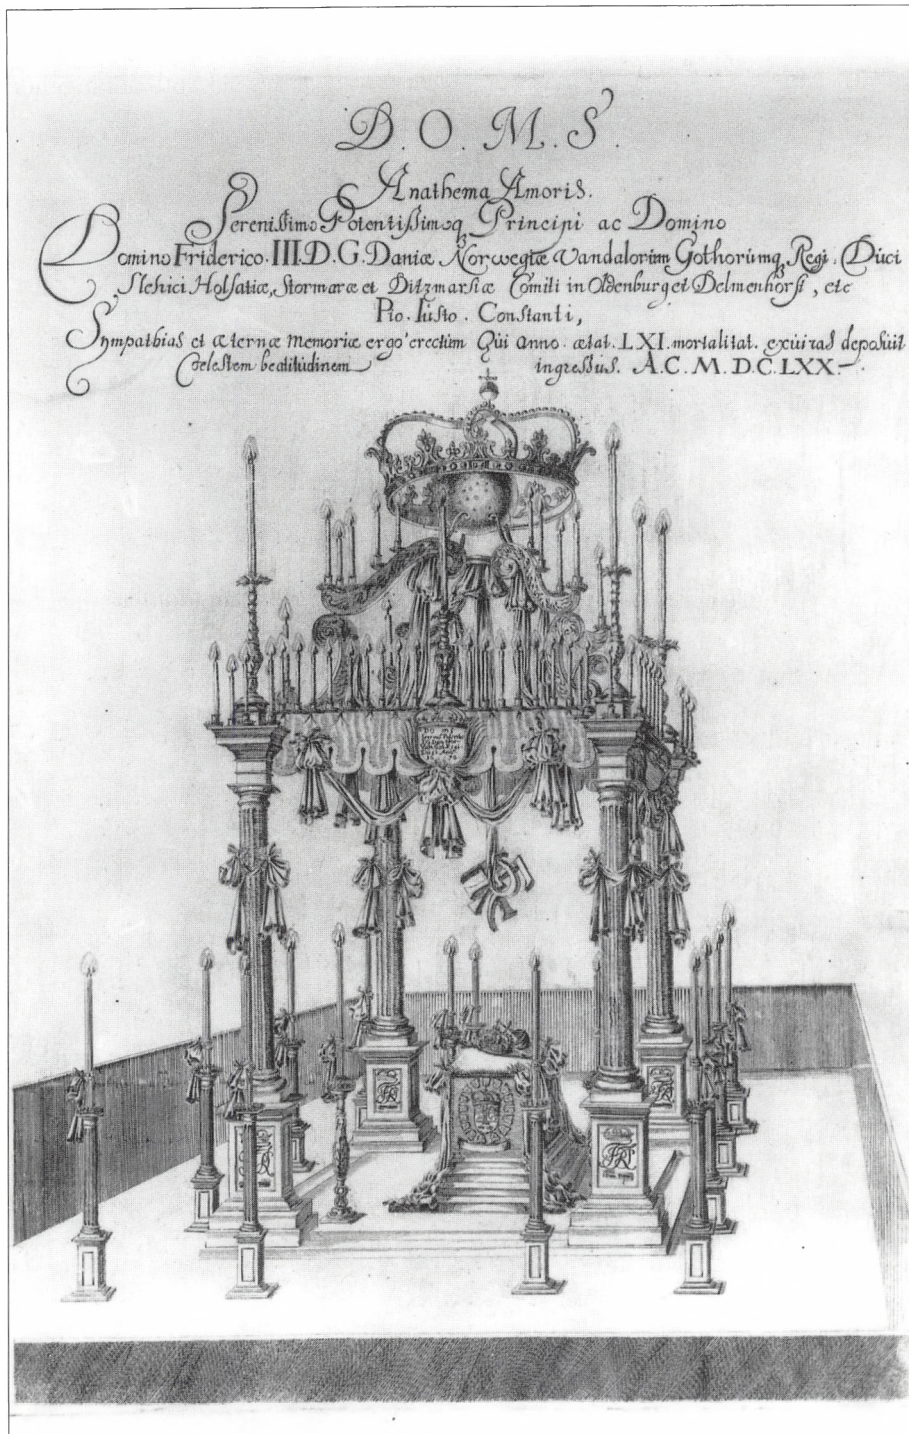 D. O. M. S.
Anathema Amoris.
Serenissimo Potentissimoq Principi ac Domino
Domino Friderico. III. D. G. Daniæ Norwegiæ Vandalorum Gothorumq Regi. Duci
Slesvici Holsatiæ, Stormaræ et Ditzmarsiæ Comiti in Oldenburg et Delmenhorst, etc
Pio. Iusto. Constanti,
Sympathias et æternæ Memoriæ ergo erectum Qui anno. ætat. LXI. mortalitat. exuvias deposuit
Coelestem beatitudinem ingressus. A. C. M. D. C. LXX.
D O M S